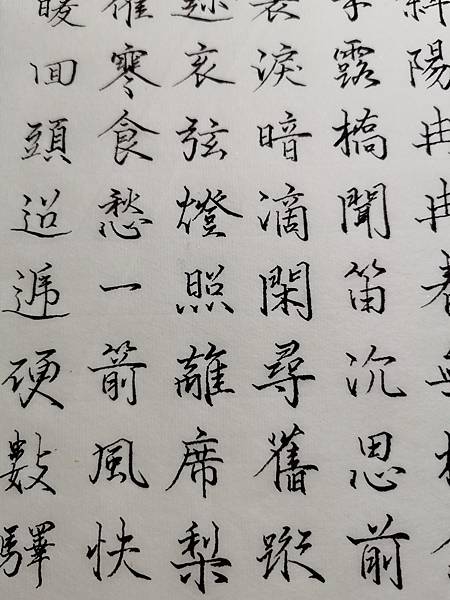 斜陽冉冉春無
手露橋聞笛沉思前
裏淚暗滴閑尋舊蹤
迹哀弦燈照離席梨
催寒食愁一箭風快
暖回頭迢遞便數驛